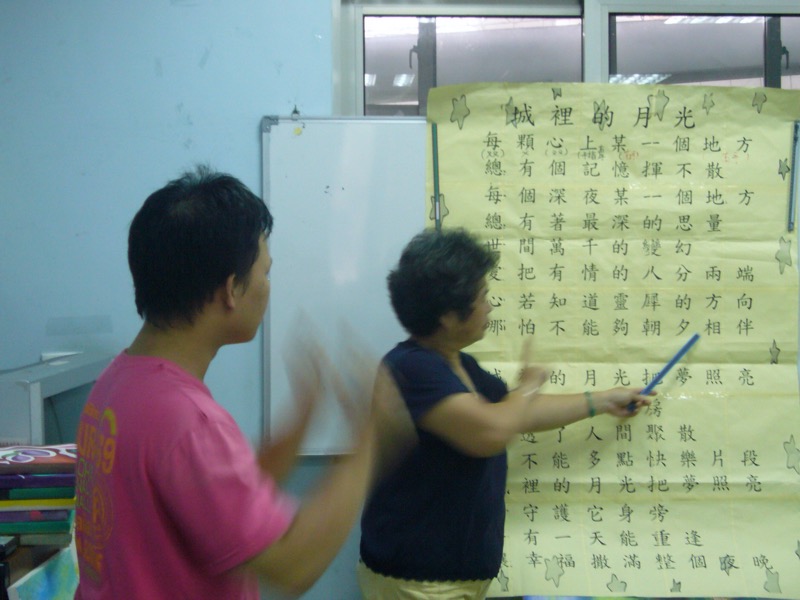 城裡的月光
每顆心上某一個地方
總有個記憶揮不散
每個深夜某一個地方
總有著最深的思量
世間萬千的變幻
愛把有情的人分兩端
心若知道靈犀的方向
那怕不能夠朝夕相伴
城 的月光把夢照亮
房
透了人間聚散
不能多點快樂片段
裡的月光把夢照亮
守護它身旁
有一天能重逢
幸福撒滿整個夜晚